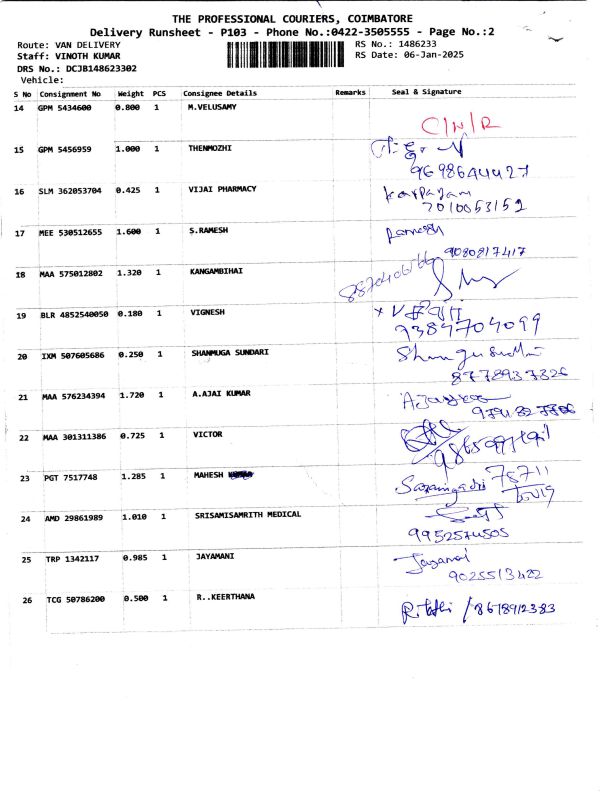 THE PROFESSIONAL COURIERS, COIMBATORE
Delivery Runsheet - P103 - Phone No.:0422-3505555 - Page No.:2
Route: VAN DELIVERY RS No.: 1486233
Staff: VINOTH KUMAR RS Date: 06-Jan-2025
DRS No.: DCJB148623302
Vehicle:
S No Consignment No Weight PCS Consignee Details Remarks Seal & Signature
14 GPM 5434600 0.800 1 M.VELUSAMY
C/N/R
15 GPM 5456959 1.000 1 THENMOZHI
9698644427
16 SLM 362053704 0.425 1 VIJAI PHARMACY Karpagam
7010053152
17 MEE 530512655 1.600 1 S.RAMESH Ramesh
9080817417
18 MAA 575012802 1.320 1 KANGAMBIHAI
19 BLR 4852540050 0.180 1 VIGNESH
9384704099
20 IXM 507605686 0.250 1 SHANMUGA SUNDARI
8778937326
21 MAA 576234394 1.720 1 A.AJAI KUMAR
22 MAA 301311386 0.725 1 VICTOR
23 PGT 7517748 1.285 1 MAHESH
24 AMD 29861989 1.010 1 SRISAMISAMRITH MEDICAL
9952574505
25 TRP 1342117 0.985 1 JAYAMANI
9025513422
26 TCG 50786200 0.500 1 R..KEERTHANA